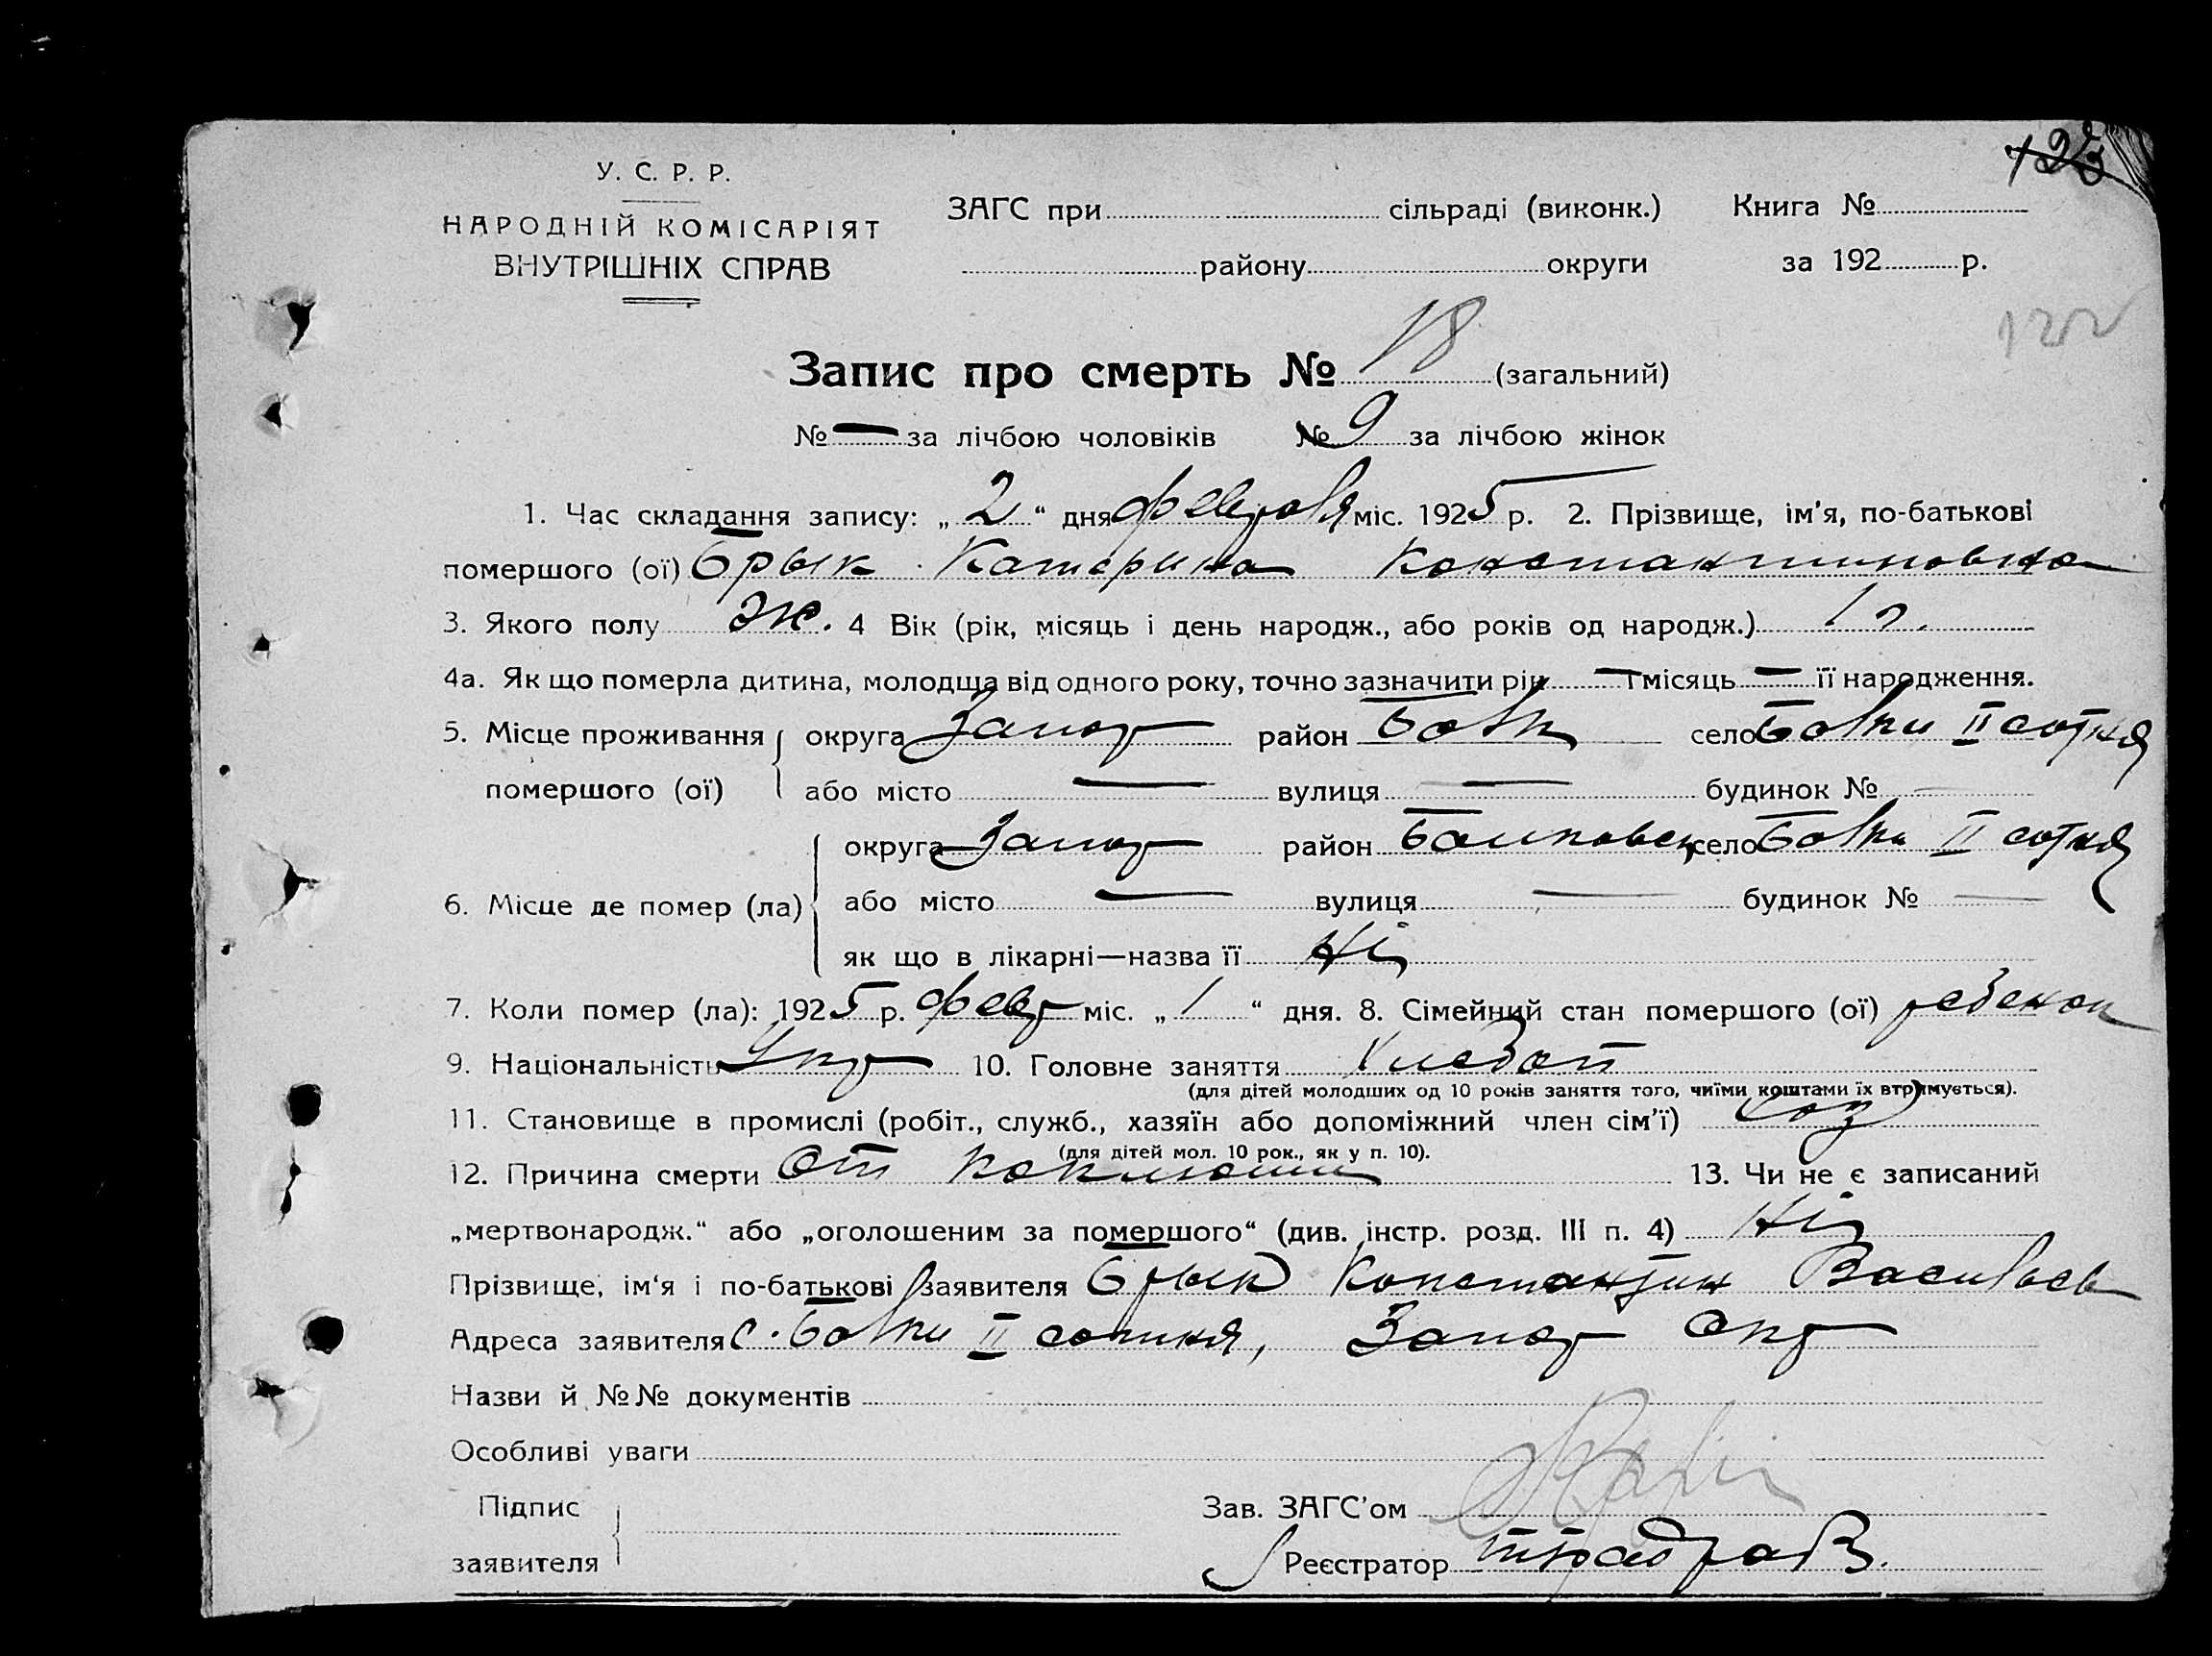 123
У. С. Р. Р.
НАРОДНІЙ КОМІСАРІЯТ
ВНУТРІШНІХ СПРАВ
ЗАГС при сільраді (виконк.) Книга №
району округи за 192 р.
122
Запис про смерть № 18 (загальний)
№ — за лічбою чоловіків № 9 за лічбою жінок
1. Час складання запису: „ 2 “ дня февраля міс. 1925 р. 2. Прізвище, ім'я, по-батькові
помершого (ої) Брык Катерина Константиновна
3. Якого полу Ж. 4 Вік (рік, місяць і день народж., або років од народж.) 1 г.
4а. Як що померла дитина, молодща від одного року, точно зазначити рік — місяць — її народження.
5. Місце проживання помершого (ої) округа Запор район Балк село Балки II сотня
або місто — вулиця — будинок № —
6. Місце де помер (ла) округа Запор район Балковск село Балки II сотня
або місто — вулиця — будинок № —
як що в лікарні—назва її Ні
7. Коли помер (ла): 1925 р. февр міс. „ 1 “ дня. 8. Сімейний стан помершого (ої) ребенок
9. Національність Укр 10. Головне заняття Хлебоп
(для дітей молодших од 10 років заняття того, чиїми коштами їх втримується).
11. Становище в промислі (робіт., служб., хазяїн або допоміжний член сім'ї) хоз
(для дітей мол. 10 рок., як у п. 10).
12. Причина смерти От коклюши 13. Чи не є записаний
„мертвонародж.“ або „оголошеним за помершого“ (див. інстр. розд. III п. 4) Ні
Прізвище, ім'я і по-батькові заявителя Брык Константин Васильев
Адреса заявителя с. Балки II сотня, Запор Окр
Назви й №№ документів
Особливі уваги
Підпис заявителя
Зав. ЗАГС'ом
Реєстратор